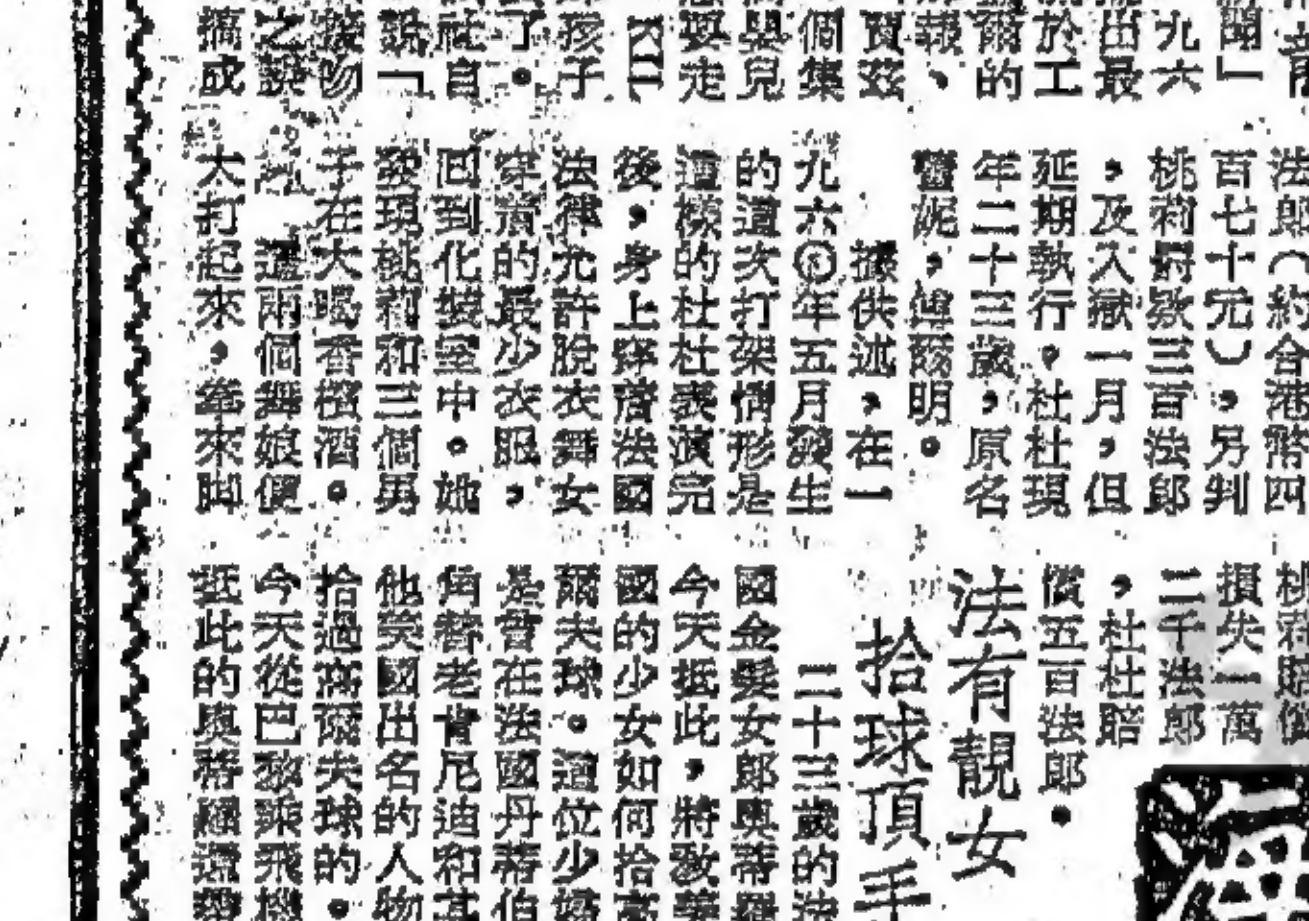 聞」
九六
出最
於工
爾的
報、
賈茲
個集
嬰兒
要走
孩子
了。
社自
說「
接物
之談
搞成
法郎(約合港幣四
百七十元),另判
桃莉爵欵三百法郎
,及入獄一月,但
延期執行。杜杜現
年二十三歲,原名
蕾妮,連爾明。
據供述,在一
九六〇年五月發生
的這次打架情形是
這樣的杜杜表演完
後,身上穿着法國
法律允許脫衣舞女
穿着的最少衣服,
回到化裝室中。她
發現桃莉和三個男
子在大喝香檳酒。
這兩個舞娘便
大打起來,拳來脚
桃莉賠償
損失一萬
二千法郎
,杜杜賠
償五百法郎。
法有靚女
拾球頂手
二十三歲的法
國金髮女郎奧蒂羅
今天抵此,將敎美
國的少女如何拾高
爾夫球。這位少婦
是曾在法國丹蒂伯
角替老肯尼迪和其
他英國出名的人物
拾過高爾夫球的。
今天從巴黎乘飛機
抵此的奧蒂羅還帶